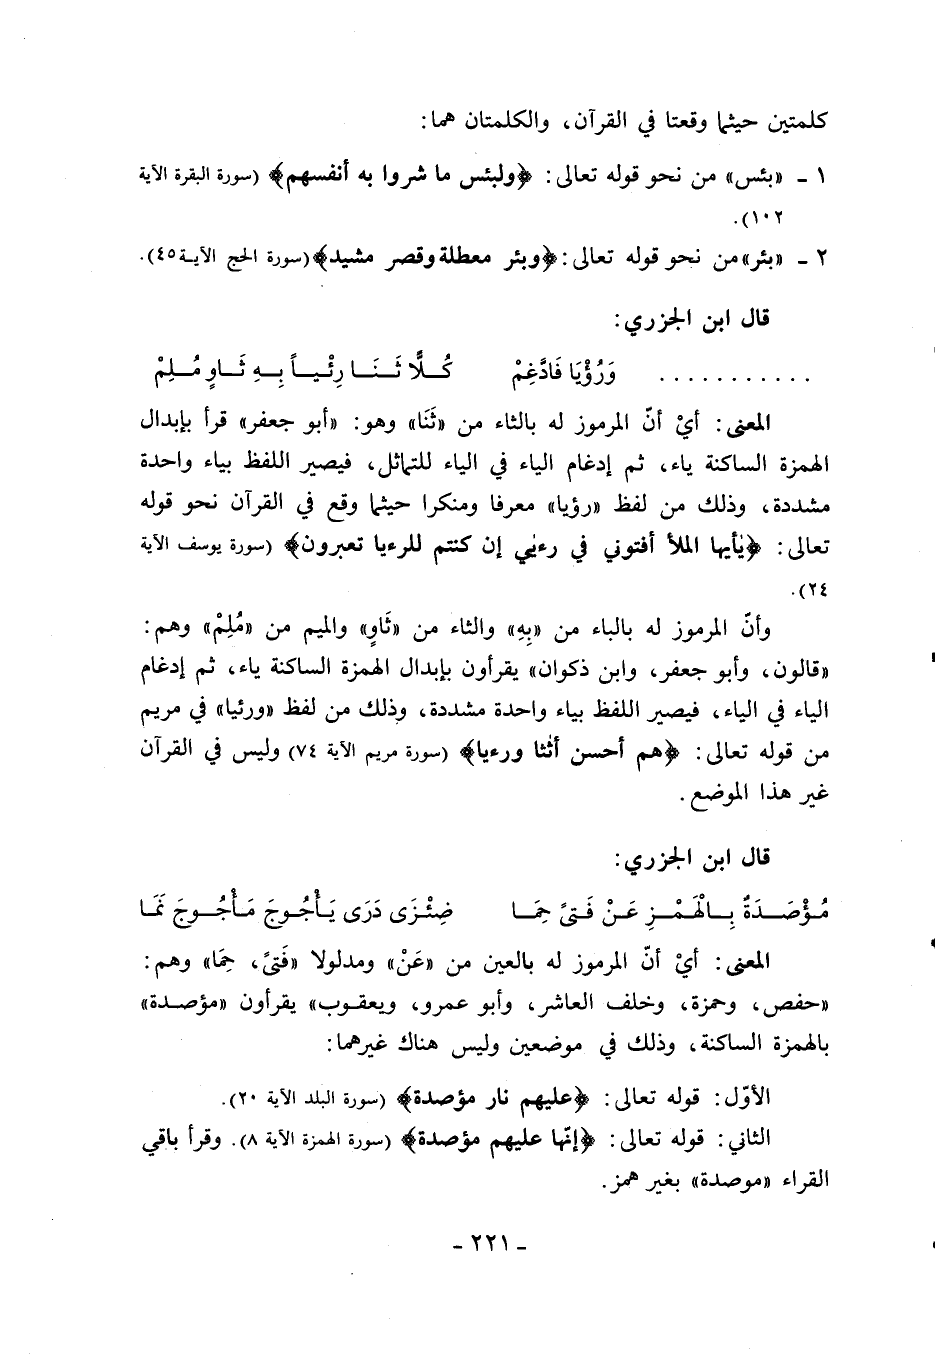 كلمتين حيثما وقعتا في القرآن، والكلمتان هما:
١ - «بئس» من نحو قوله تعالى: ﴿ولبئس ما شروا به أنفسهم﴾ (سورة البقرة الآية
١٠٢).
٢ - «بئر» من نحو قوله تعالى: ﴿وبئر معطلة وقصر مشيد﴾ (سورة الحج الآية ٤٥).
قال ابن الجزري:
........... وَرُؤْيَا فَادَّغِمْ كُلًّا ثَنَا رِئْياً بِهِ ثَاوٍ مُلِمْ
المعنى: أيْ أنّ المرموز له بالثاء من «ثَنَا» وهو: «أبو جعفر» قرأ بإبدال
الهمزة الساكنة ياء، ثم إدغام الياء في الياء للتماثل، فيصير اللفظ بياء واحدة
مشددة، وذلك من لفظ «رؤيا» معرفا ومنكرا حيثما وقع في القرآن نحو قوله
تعالى: ﴿يٰأيها الملأ أفتوني في رءيٰي إن كنتم للرءيا تعبرون﴾ (سورة يوسف الآية
٢٤).
وأنّ المرموز له بالباء من «بِهِ» والثاء من «ثَاوٍ» والميم من «مُلِمْ» وهم:
«قالون، وأبو جعفر، وابن ذكوان» يقرأون بإبدال الهمزة الساكنة ياء، ثم إدغام
الياء في الياء، فيصير اللفظ بياء واحدة مشددة، وذلك من لفظ «ورئيا» في مريم
من قوله تعالى: ﴿هم أحسن أثٰثا ورءيا﴾ (سورة مريم الآية ٧٤) وليس في القرآن
غير هذا الموضع.
قال ابن الجزري:
مُؤْصَدَةٌ بِالْهَمْزِ عَنْ فَتىً حِمَا ضِئْزَى دَرَى يَأْجُوجَ مَأْجُوجَ نَمَا
المعنى: أيْ أنّ المرموز له بالعين من «عَنْ» ومدلولا «فَتىً، حِمَا» وهم:
«حفص، وحمزة، وخلف العاشر، وأبو عمرو، ويعقوب» يقرأون «مؤصدة»
بالهمزة الساكنة، وذلك في موضعين وليس هناك غيرهما:
الأوّل: قوله تعالى: ﴿عليهم نار مؤصدة﴾ (سورة البلد الآية ٢٠).
الثاني: قوله تعالى: ﴿إنّها عليهم مؤصدة﴾ (سورة الهمزة الآية ٨). وقرأ باقي
القراء «موصدة» بغير همز.
- ٢٢١ -